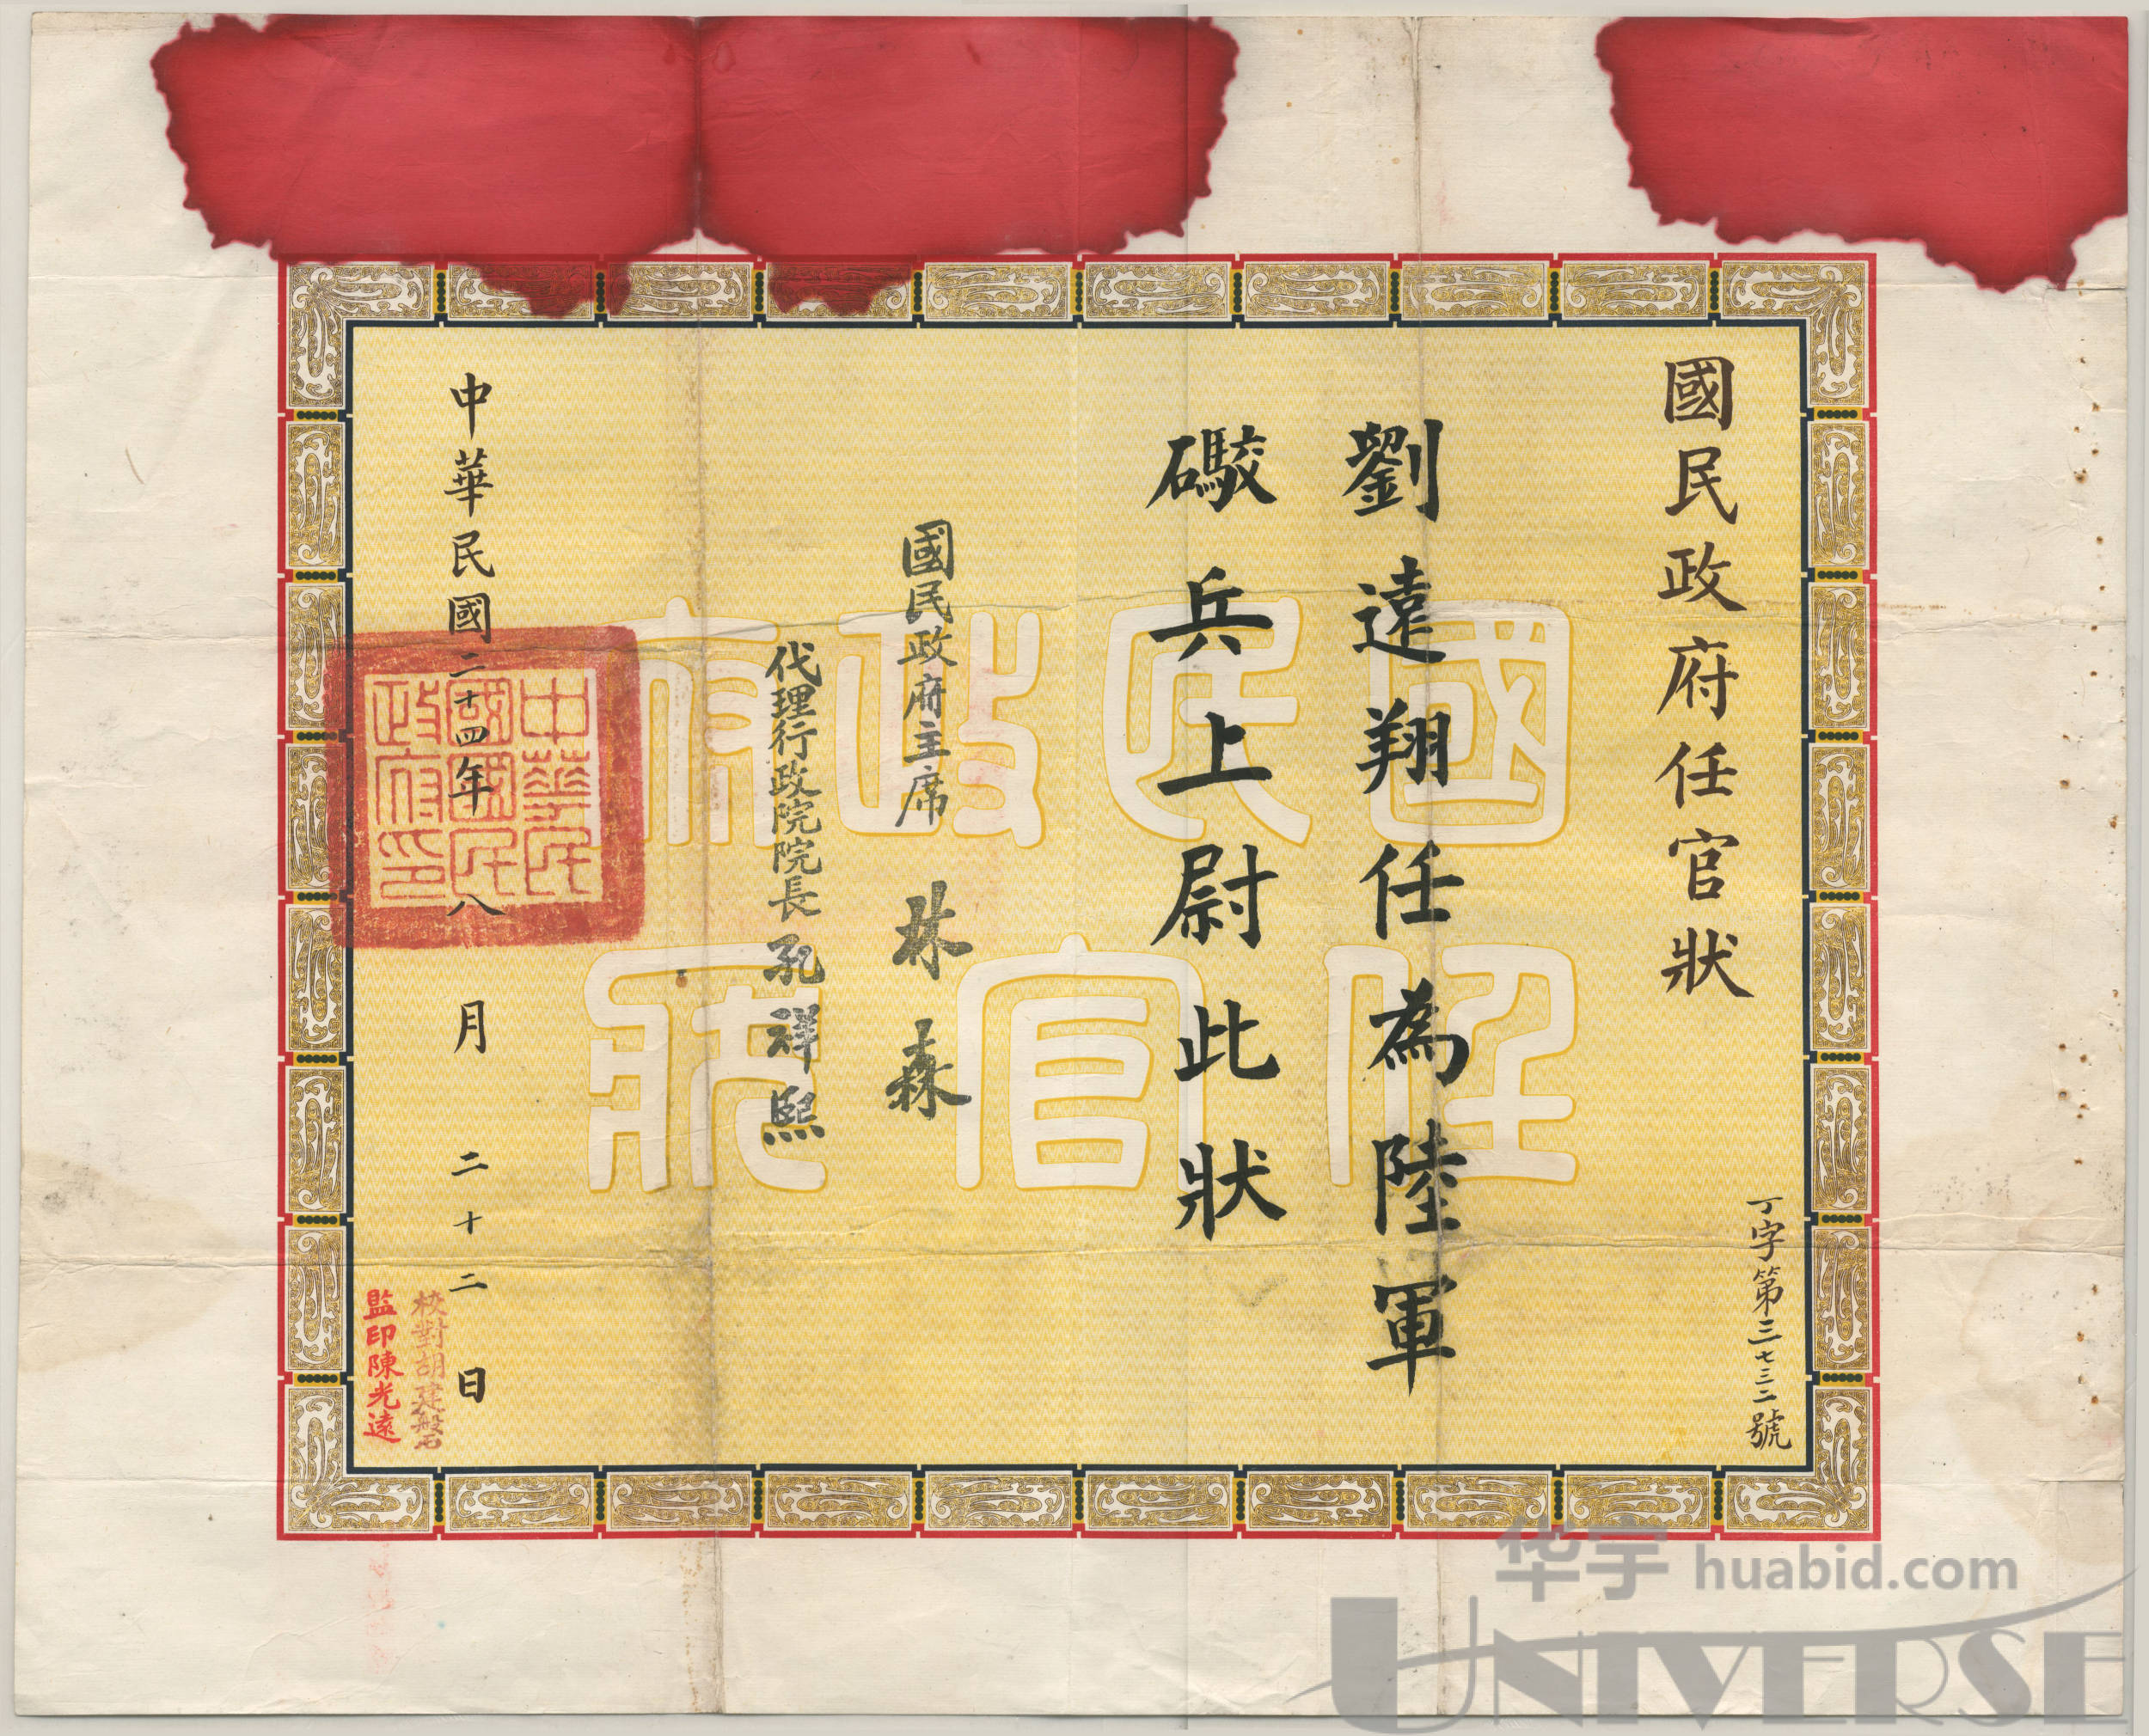 國民政府任官狀
丁字第三七三二號
劉遠翔任為陸軍
礮兵上尉此狀
國民政府主席 林森
代理行政院院長 孔祥熙
中華民國二十四年八月二十二日
中華民國國民政府印
校對胡建磐
監印陳光遠
國民政府
任官狀
华宇 huabid.com
UNIVERSE